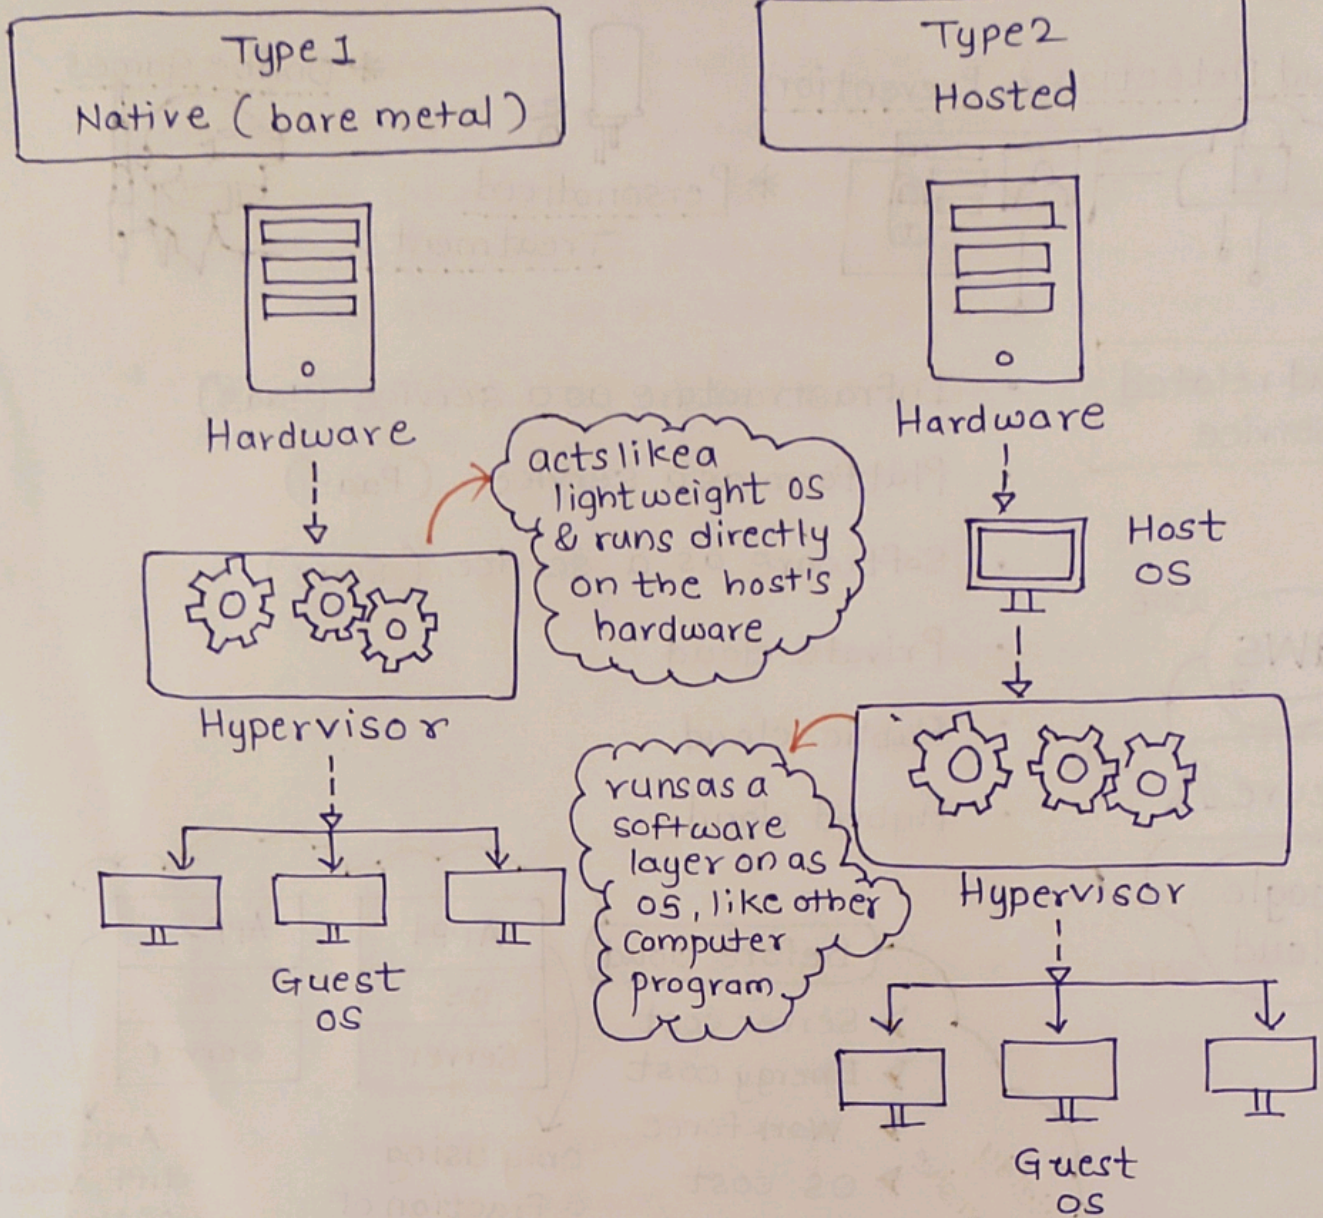 Type 1
Native (bare metal)
Hardware
acts like a
lightweight OS
& runs directly
on the host's
hardware
Hypervisor
Guest
OS
Type 2
Hosted
Hardware
Host
OS
runs as a
software
layer on as
OS, like other
computer
program
Hypervisor
Guest
OS